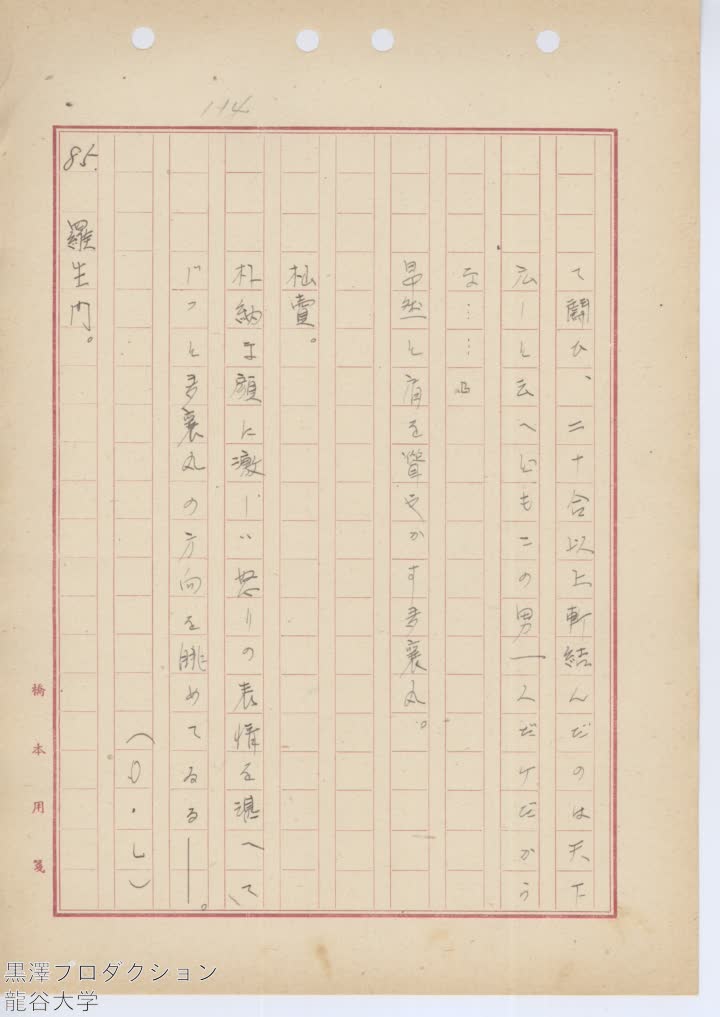 114
て闘ひ、二十合以上斬結んだのは天下
広しと云へどもこの男一人だけだから
な……』
昂然と肩を聳やかす多襄丸。
杣賣。
朴納な顔に激しい怒りの表情を湛へて、
ぢつと多襄丸の方向を眺めてゐる――。
(O・L)
85. 羅生門。
橋本用箋
黒澤プロダクション
龍谷大学